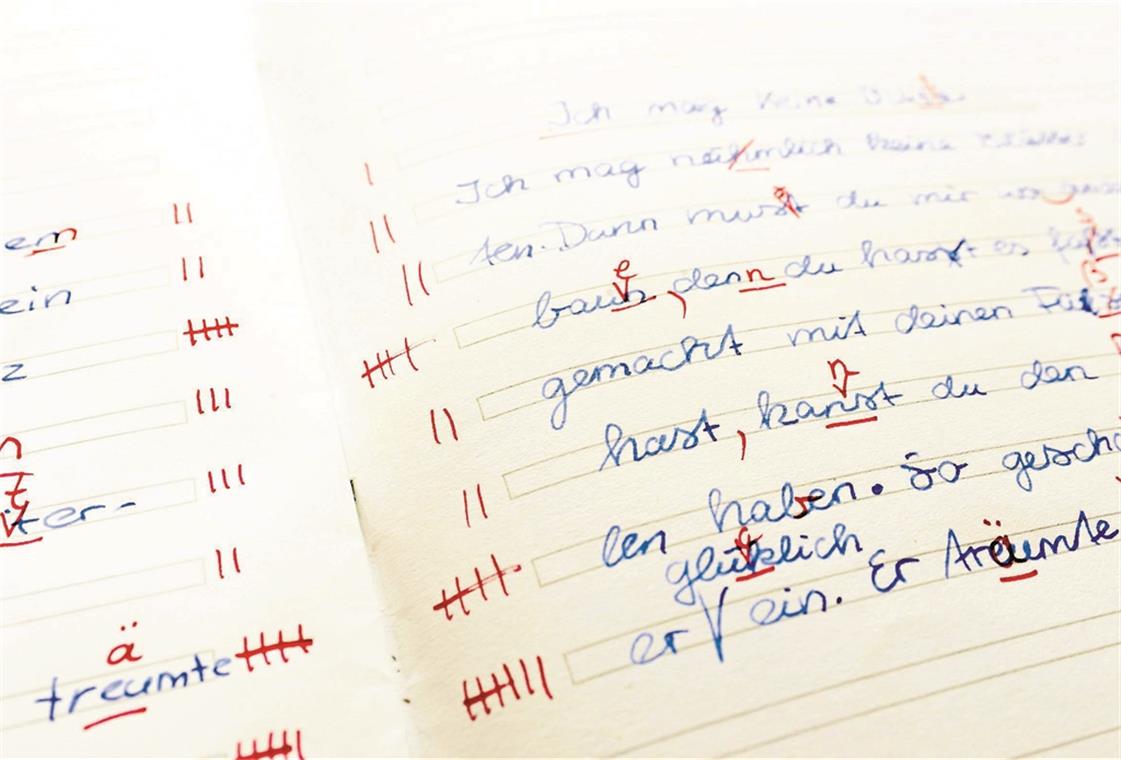 em
ein
z
n
t
ter-
ä
treumte
Ich mag keine
Ich mag keine
ten. Dann musst du mir
e
baun, denn du hast es
gemacht mit deinen
n
hast, kanst du den
len haben. So gescha
glüklich
er √ ein. Er träumte